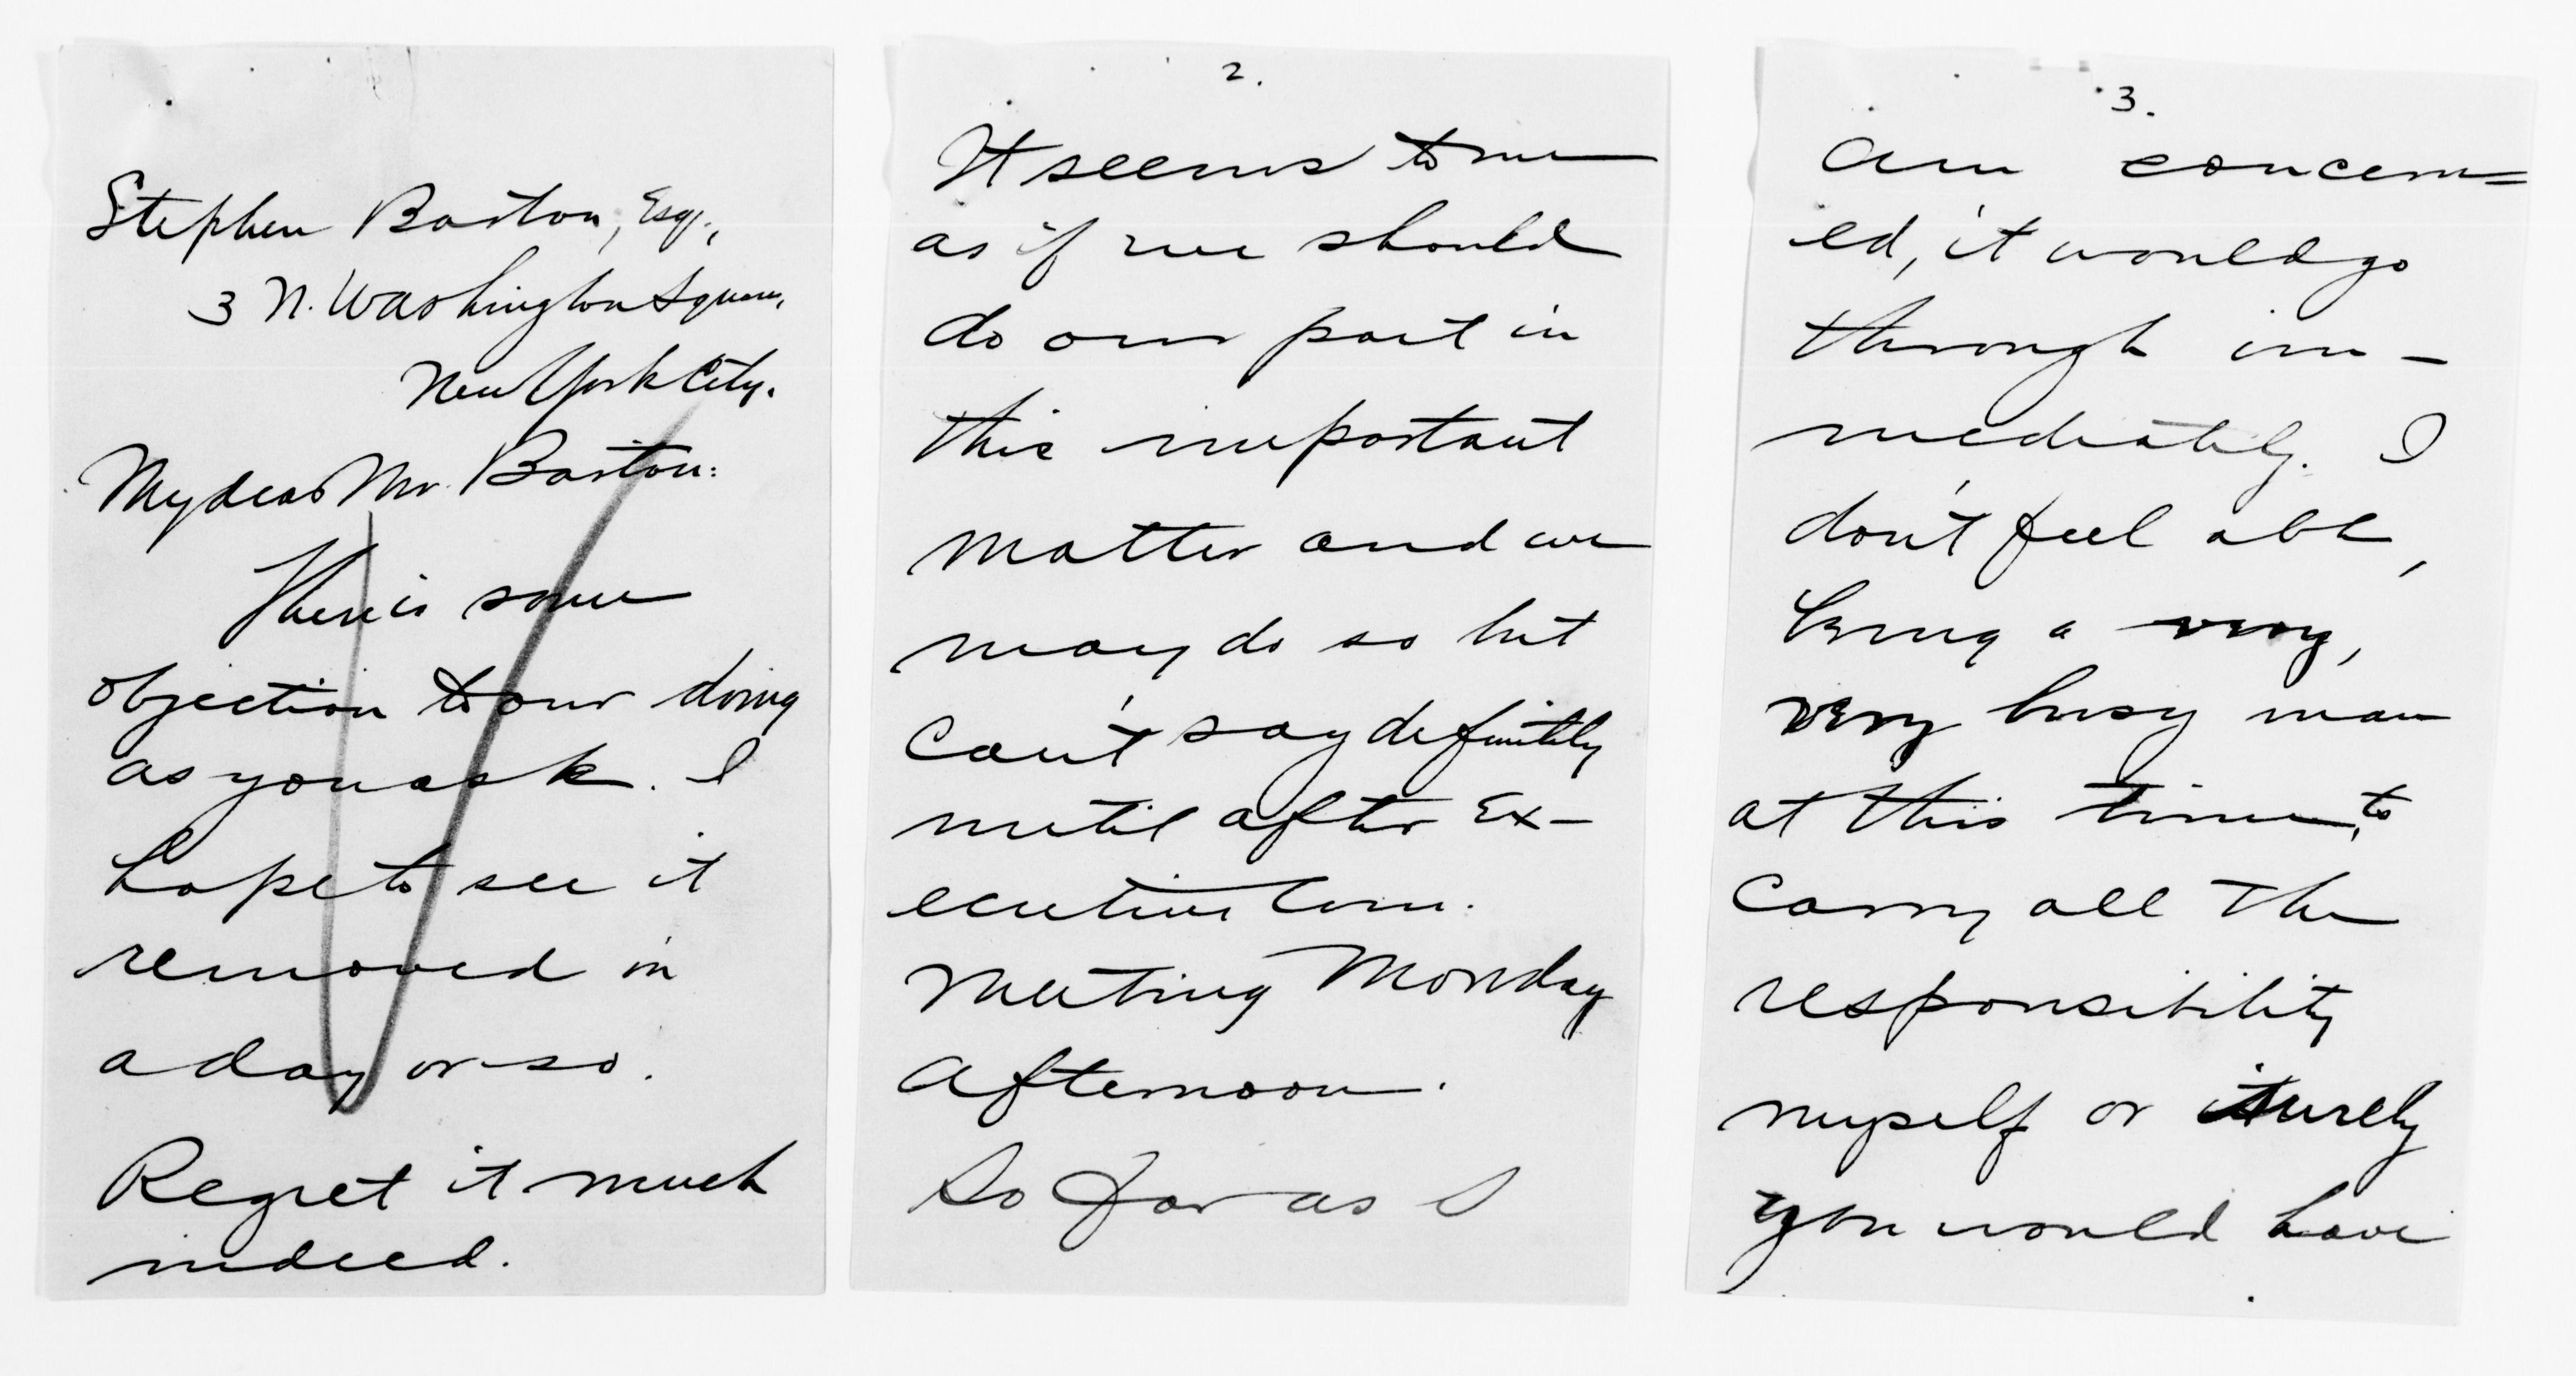 Stephen Barton, Esq.,
3 N. Washington Square,
New York City.
My dear Mr. Barton:
There is some
objection to our doing
as you ask. I
hope to see it
removed in
a day or so.
Regret it much
indeed.
2.
It seems to me
as if we should
do our part in
this important
matter and we
may do so but
can't say definitely
until after Ex-
ecutive Com.
Meeting Monday
afternoon.
So far as I
3.
am concern=
ed, it would go
through im-
mediately. I
don't feel able,
being a very,
very busy man
at this time, to
carry all the
responsibility
myself or surely
you would have